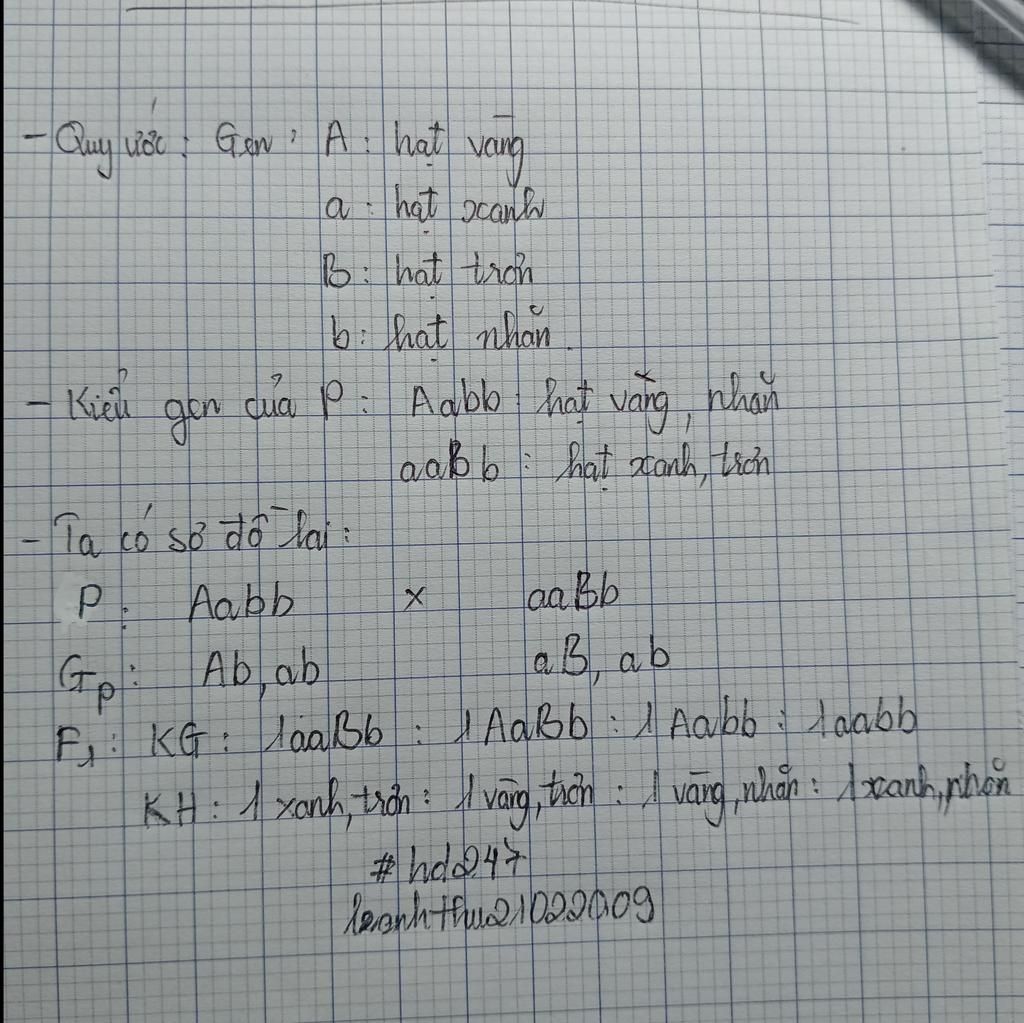 - Quy ước: Gen: A: hạt vàng
a: hạt xanh
B: hạt trơn
b: hạt nhăn.
- Kiểu gen của P: Aabb: hạt vàng, nhăn
aaBb: hạt xanh, trơn
- Ta có sơ đồ lai:
P: Aabb x aaBb
Gp: Ab, ab aB, ab
F1: KG: 1aaBb : 1AaBb : 1Aabb : 1aabb
KH: 1 xanh, trơn : 1 vàng, trơn : 1 vàng, nhăn : 1 xanh, nhăn
# hdc247
leanhthu21022009